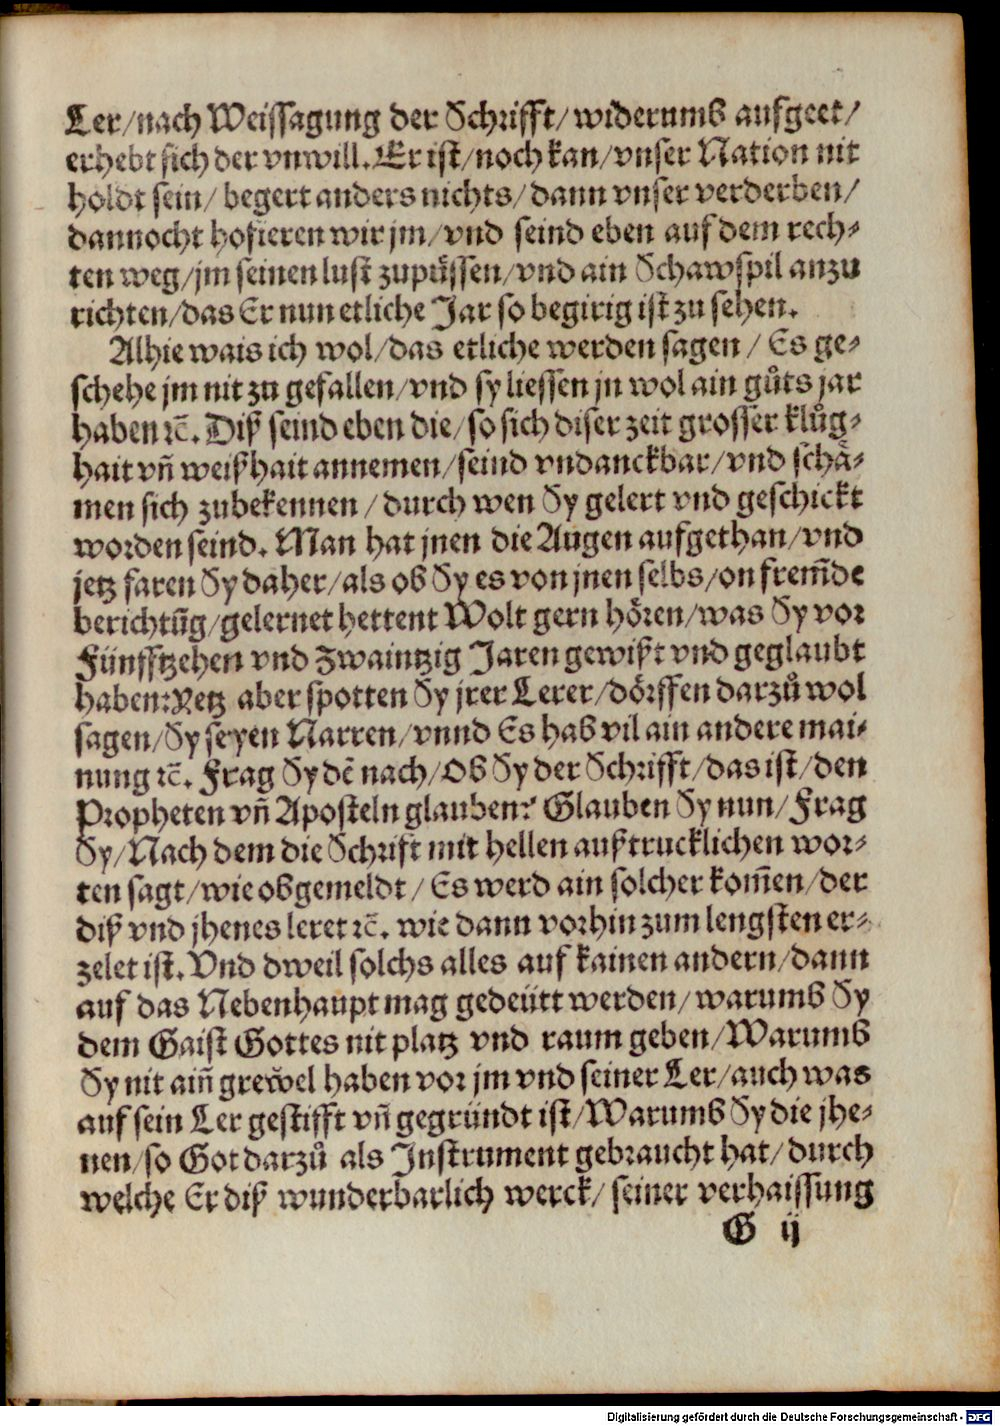 Ler/nach Weissagung der Schrifft/widerumb aufgeet/
erhebt sich der vnwill. Er ist/noch kan/vnser Nation nit
holdt sein/ begert anders nichts/ dann vnser verderben/
dannocht hofieren wir jm/vnd seind eben auf dem rech-
ten weg/jm seinen lust zupuͤssen/vnd ain Schawspil anzu
richten/das Er nun etliche Jar so begirig ist zu sehen.
Alhie wais ich wol/das etliche werden sagen/ Es ge-
schehe jm nit zu gefallen/vnd sy liessen jn wol ain guͦts jar
haben ꝛc̄. Diß seind eben die/so sich diser zeit grosser kluͦg-
hait vn̄ weißhait annemen/seind vndanckbar/vnd schaͤ-
men sich zubekennen /durch wen Sy gelert vnd geschickt
worden seind. Man hat jnen die Augen aufgethan/vnd
jetz faren Sy daher/als ob Sy es von jnen selbs/on frem̄de
berichtūg/gelernet hettent Wolt gern hoͤren/was Sy vor
Fünfftzehen vnd Zwaintzig Jaren gewißt vnd geglaubt
haben: Yetz aber spotten Sy jrer Lerer/doͤrffen darzuͦ wol
sagen/Sy seyen Narren/vnnd Es hab vil ain andere mai-
nung ꝛc̄. Frag Sy dē nach/Ob Sy der Schrifft/das ist/den
Propheten vn̄ Aposteln glauben? Glauben Sy nun/Frag
Sy/Nach dem die Schrift mit hellen außtrucklichen wor-
ten sagt/wie obgemeldt/ Es werd ain solcher kom̄en/der
diß vnd jhenes leret ꝛc̄. wie dann vorhin zum lengsten er-
zelet ist. Vnd dweil solchs alles auf kainen andern/dann
auf das Nebenhaupt mag gedeütt werden/warumb Sy
dem Gaist Gottes nit platz vnd raum geben/Warumb
Sy nit ain̄ grewel haben vor jm vnd seiner Ler/auch was
auf sein Ler gestifft vn̄ gegründt ist/Warumb Sy die jhe-
nen/so Got darzuͦ als Instrument gebraucht hat/durch
welche Er diß wunderbarlich werck/ seiner verhaissung
G ij
Digitalisierung gefördert durch die Deutsche Forschungsgemeinschaft - DFG